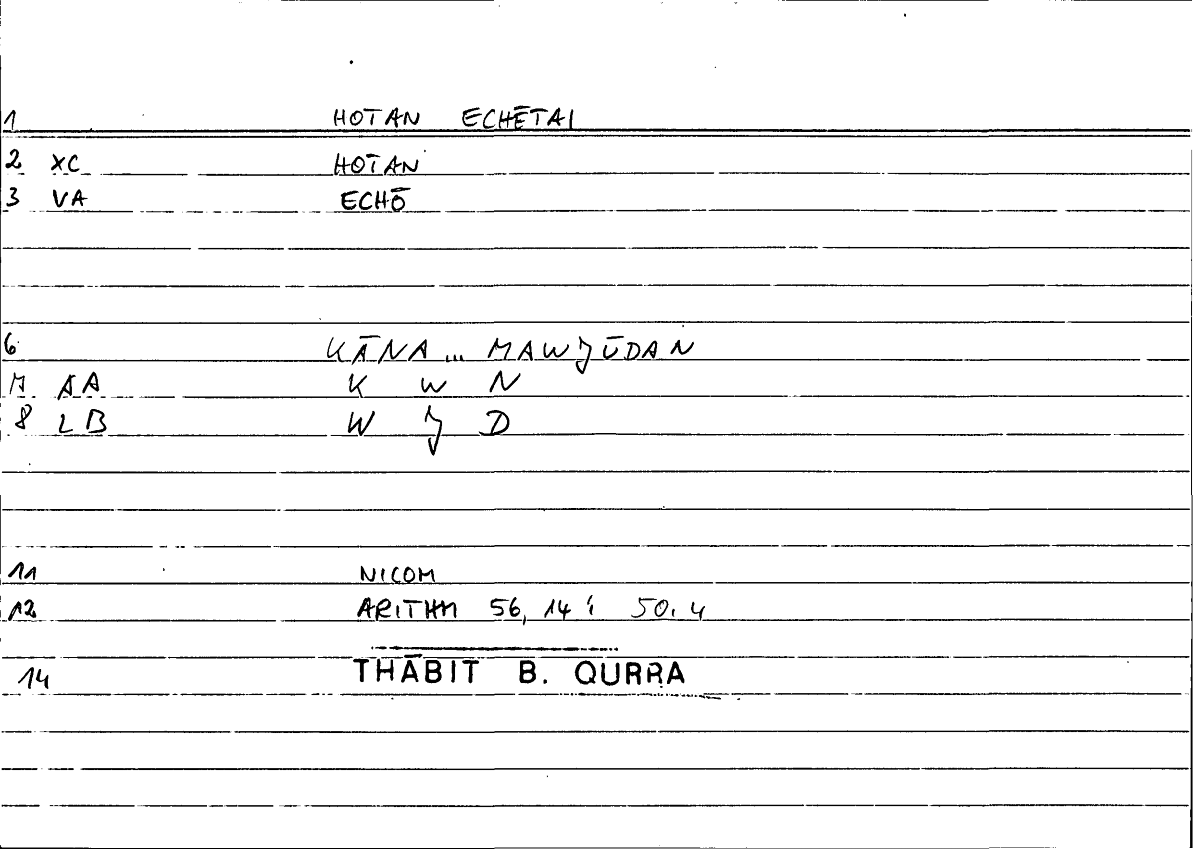 1 HOTAN ECHĒTAI
2 XC HOTAN
3 VA ECHŌ
6 KĀNA ... MAWJŪDAN
7 AA K W N
8 LB W J D
11 NICOM
12 ARITHM 56, 14 ; 50. 4
14 THĀBIT B. QURRA